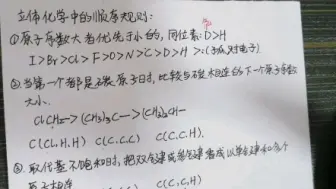 立体化学中的顺序规则:
①原子序数大者优先于小的, 同位素: D>H
I>Br>Cl>F>O>N>C>D>H>:(孤对电子)
②当第一个都是碳原子时, 比较与碳相连的下一个原子序数
大小.
ClCH₂—>(CH₃)₃C—>(CH₃)₂CH—
C(Cl,H,H) C(C,C,C) C(C,C,H).
③.取代基不饱和时, 把双键或叁键看成以单键和多个
原子相连